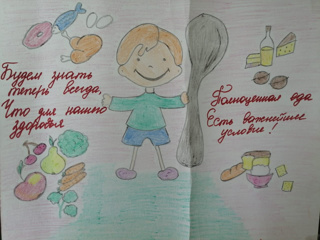 Будем знать
теперь всегда,
Что для нашего
здоровья
Полноценная еда
Есть важнейшее
условие!